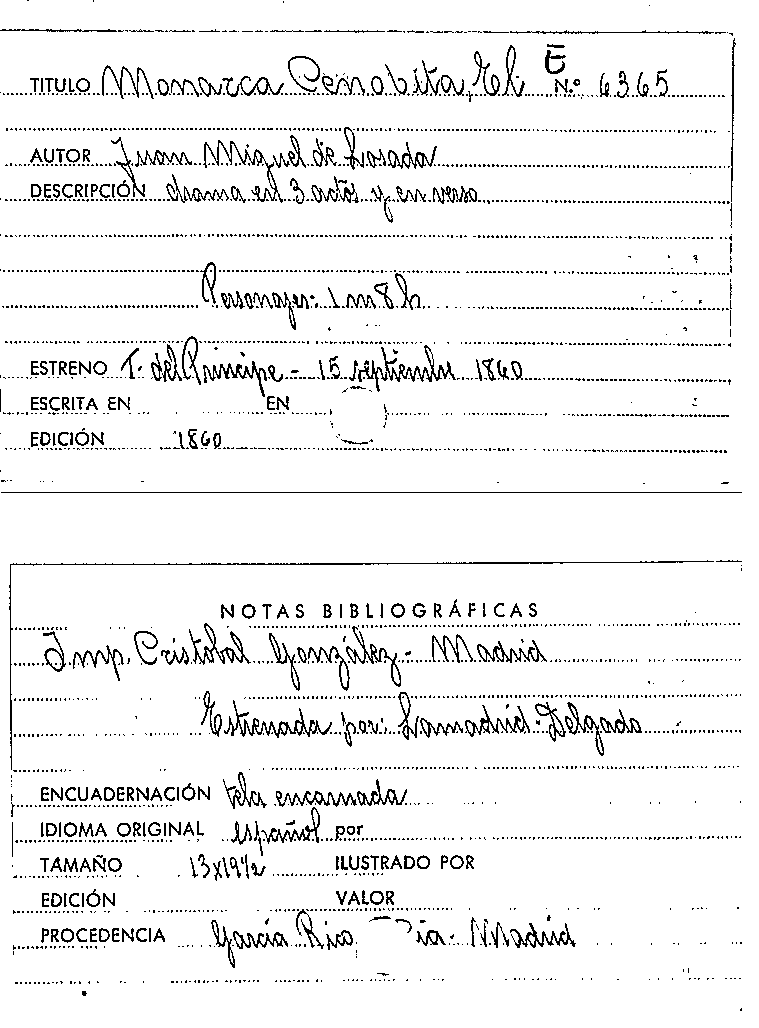 E
TITULO Monarca Cenobita, El N.º 6365
AUTOR Juan Miguel de Losada
DESCRIPCIÓN drama en 3 actos y en verso
Personajes: 1 m 8 h
ESTRENO T. del Principe - 15 septiembre 1860
ESCRITA EN EN
EDICIÓN 1860
NOTAS BIBLIOGRÁFICAS
Imp. Cristobal González - Madrid
Estrenada por: Lamadrid-Delgado
ENCUADERNACIÓN tela encarnada
IDIOMA ORIGINAL español por
TAMAÑO 13x19½ ILUSTRADO POR
EDICIÓN VALOR
PROCEDENCIA García Rico Madrid